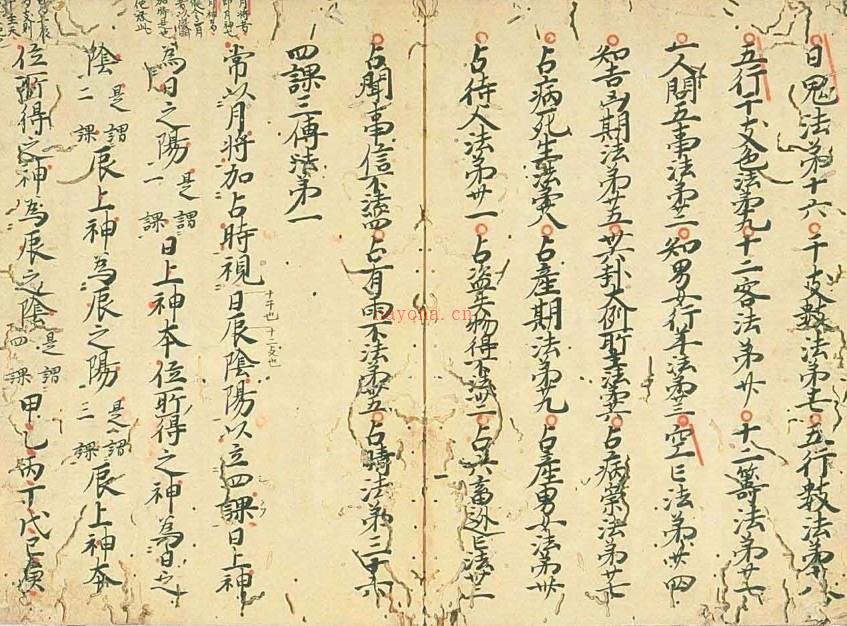 日鬼法第十六 干支數法第十七 五行數法第十八
五行干支色法第十九 十二客法第廿 十二籌法第廿一
一人問五事法第廿二 知男女行年法第廿三 空亡法第廿四
知吉凶期法第廿五 卅六卦大例所主法第廿六 占病祟法第廿七
占病死生法第廿八 占産期法第廿九 占産男女法第卅
占待人法第卅一 占盗失物得不法卅二 占六畜逃亡法卅三
占聞事信不法卅四 占有雨不法第卅五 占晴法第三十六
四課三傳法第一
常以月將加占時視日辰陰陽以立四課日上神
十干也 十二支也
為日之陽 是謂一課 日上神本位所得之神為日之
陰 是謂二課 辰上神為辰之陽 是謂三課 辰上神本
位所得之神為辰之陰 是謂四課 甲乙丙丁戊己庚
nayona.cn